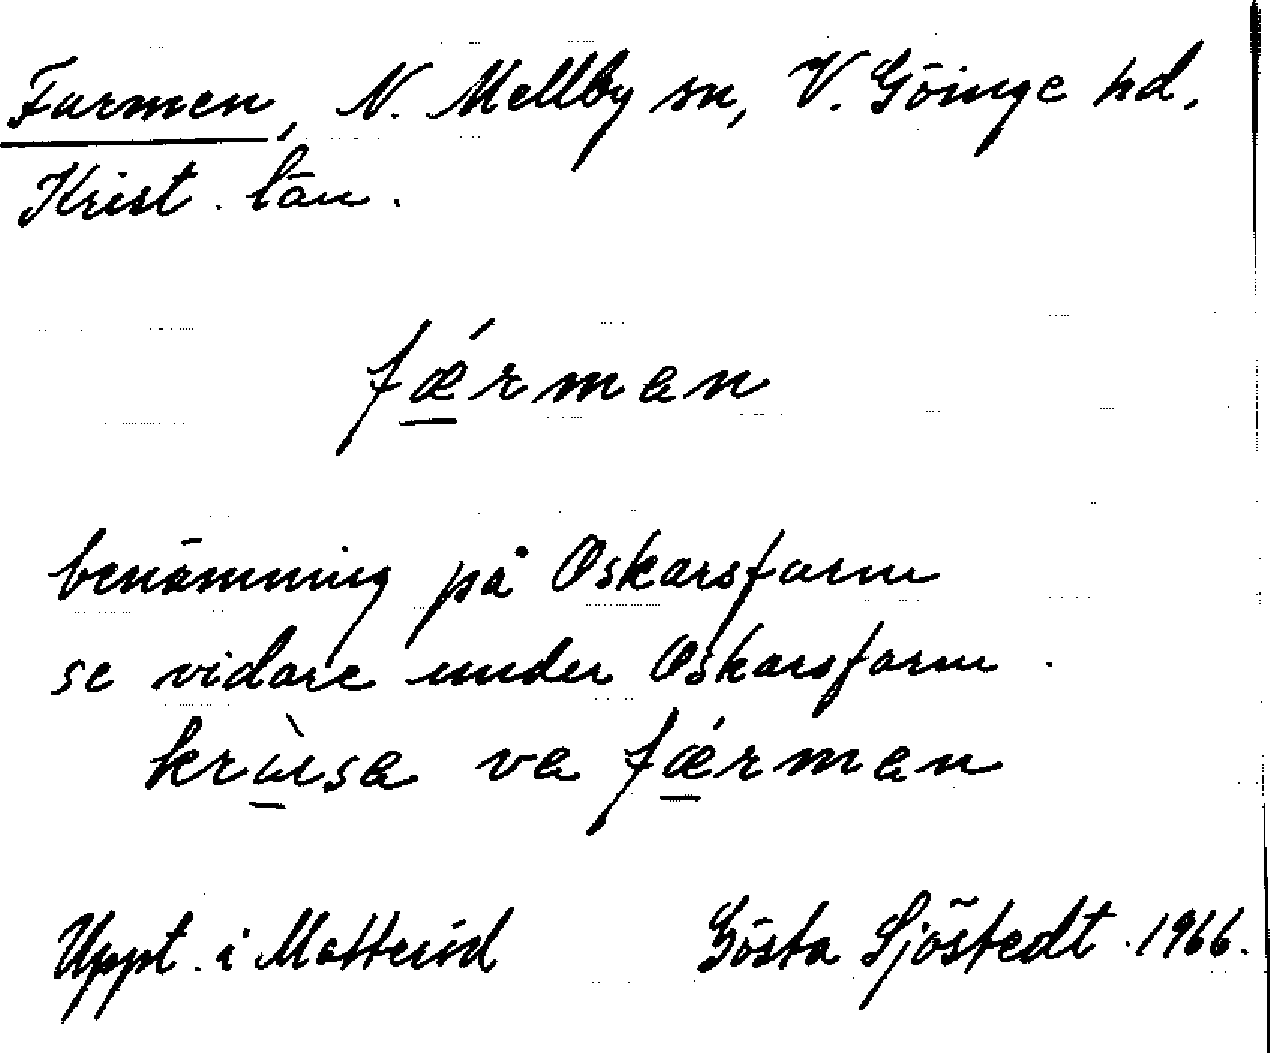 Farmen, N. Mellby sn, V. Göinge hd.
Krist. län.
fǽrman
benämning på Oskarsfarm
se vidare under Oskarsfarm.
va fǽrman
Uppt. i Gösta Sjöstedt 1966.